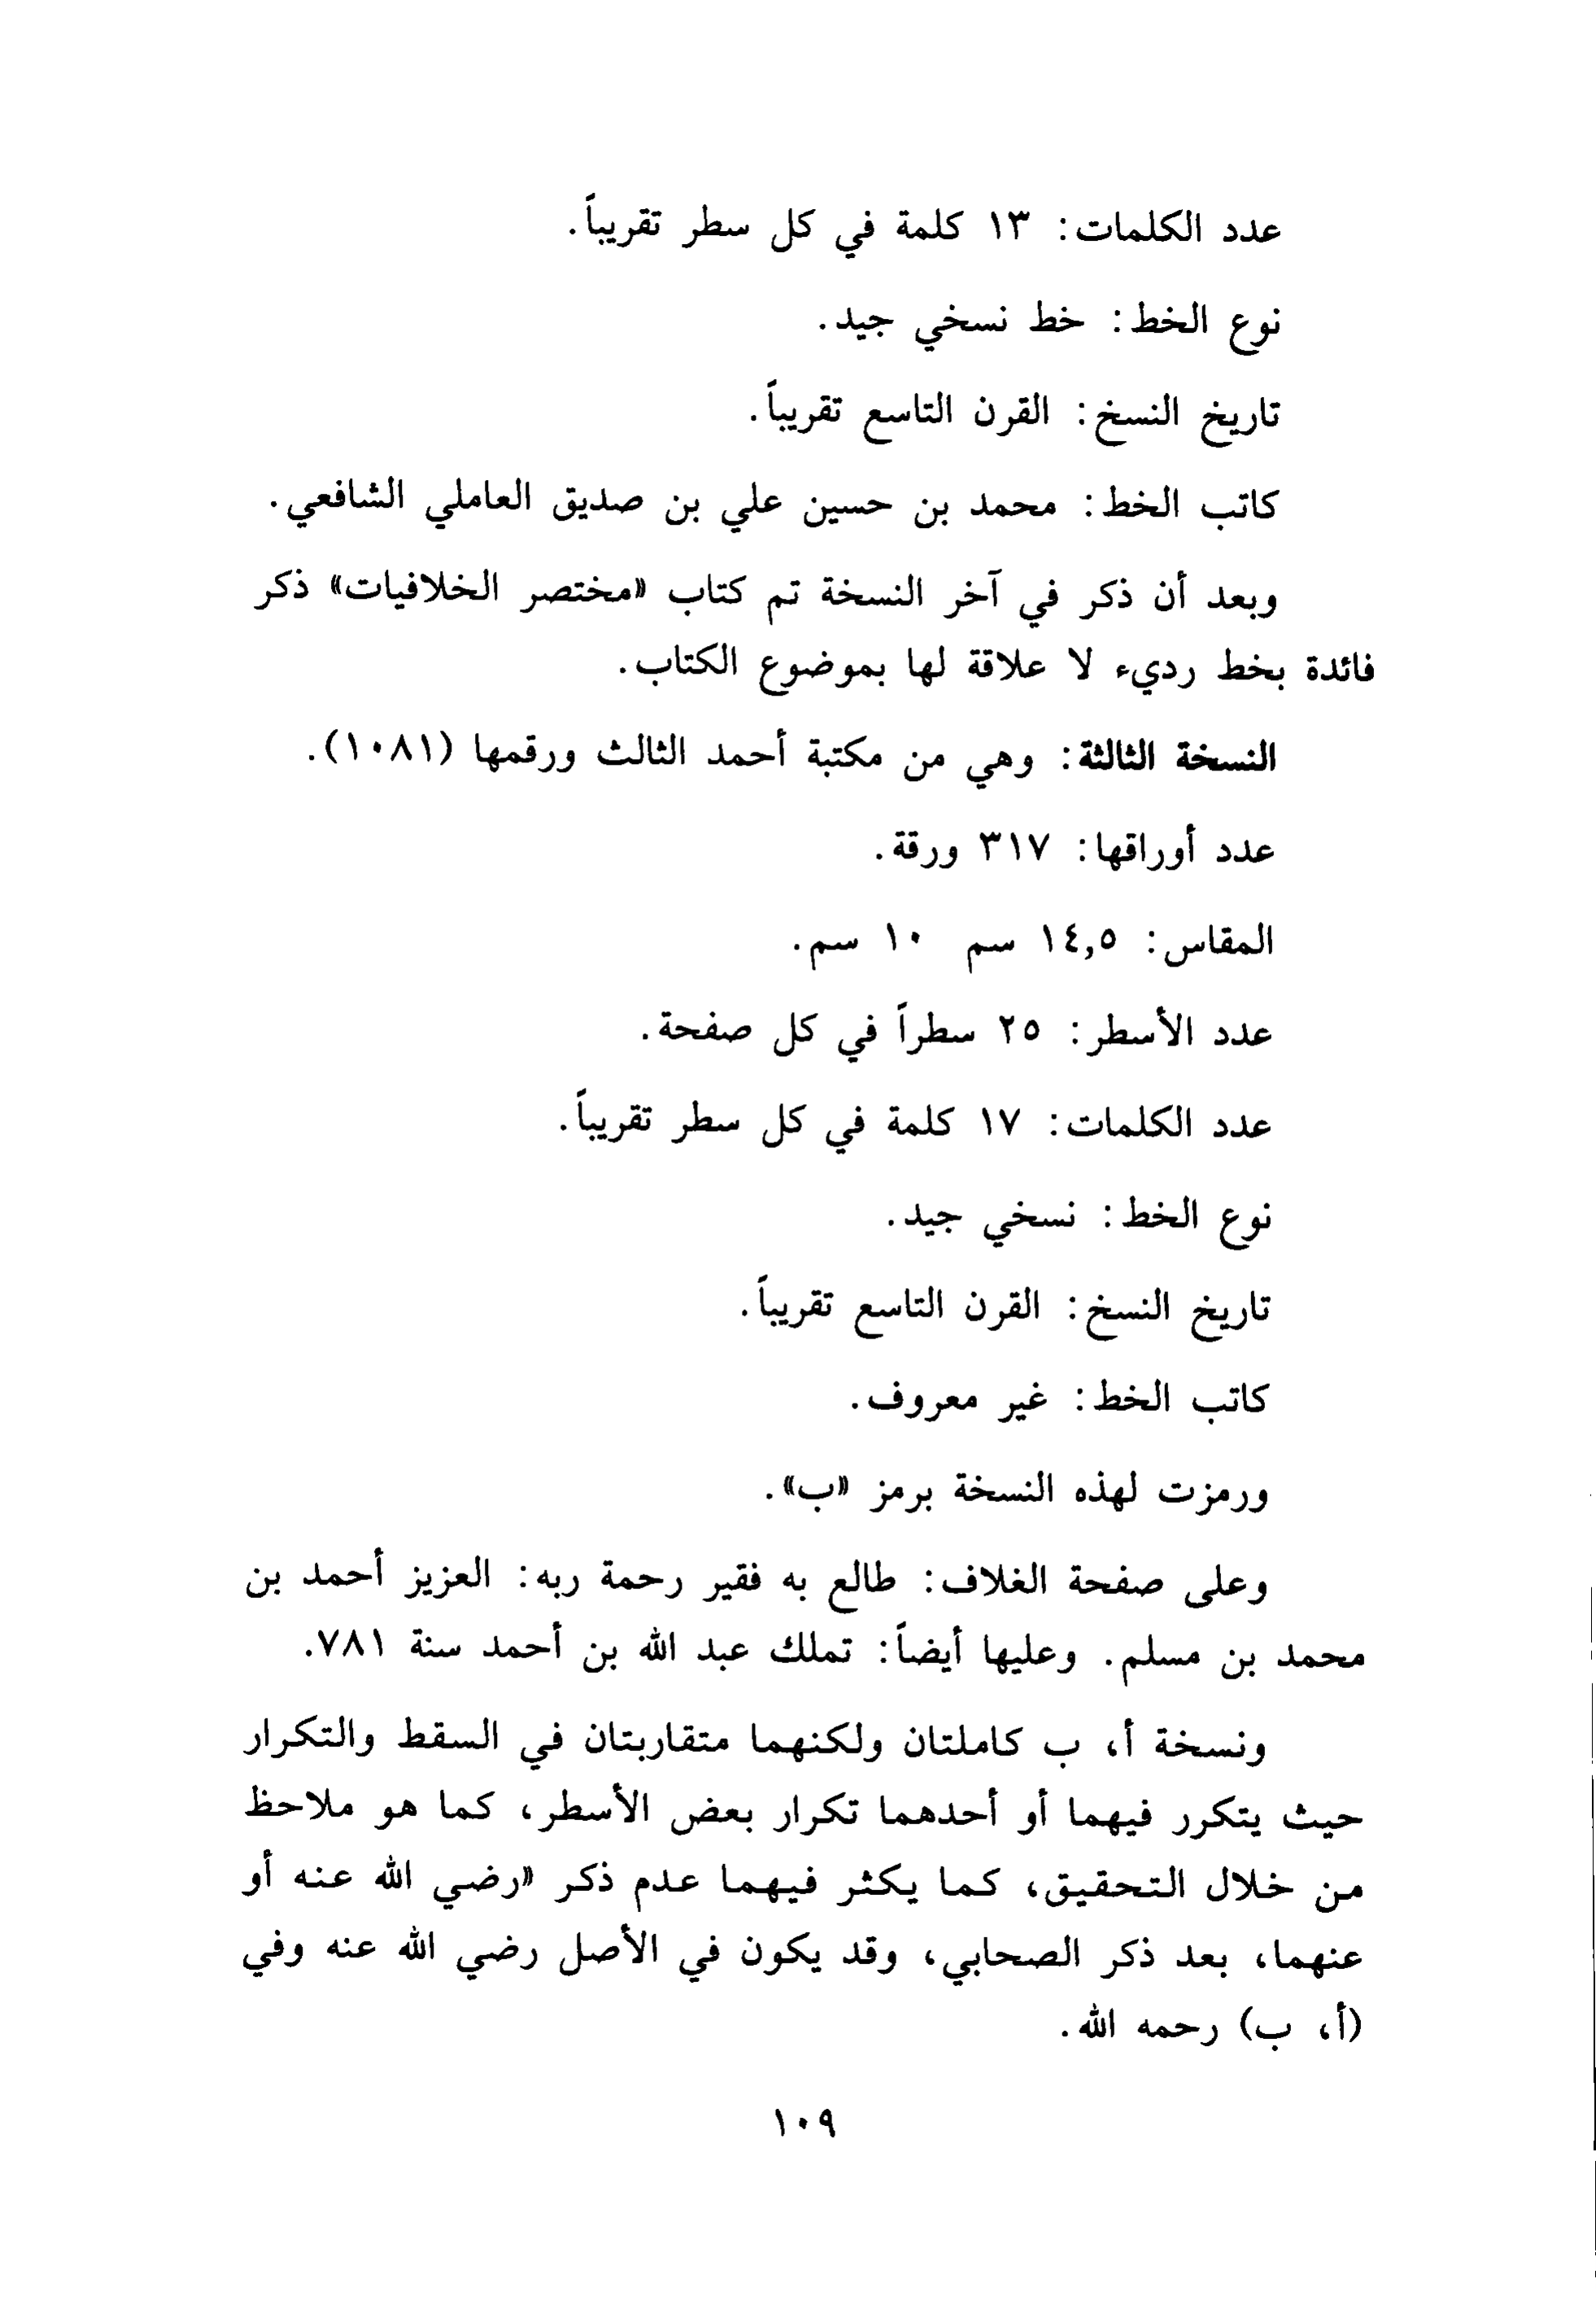 عدد الكلمات: ١٣ كلمة في كل سطر تقريباً.
نوع الخط: خط نسخي جيد.
تاريخ النسخ: القرن التاسع تقريباً.
كاتب الخط: محمد بن حسين علي بن صديق العاملي الشافعي.
وبعد أن ذكر في آخر النسخة تم كتاب «مختصر الخلافيات» ذكر
فائدة بخط رديء لا علاقة لها بموضوع الكتاب.
النسخة الثالثة: وهي من مكتبة أحمد الثالث ورقمها (١٠٨١).
عدد أوراقها: ٣١٧ ورقة.
المقاس: ١٤,٥ سم ١٠ سم.
عدد الأسطر: ٢٥ سطراً في كل صفحة.
عدد الكلمات: ١٧ كلمة في كل سطر تقريباً.
نوع الخط: نسخي جيد.
تاريخ النسخ: القرن التاسع تقريباً.
كاتب الخط: غير معروف.
ورمزت لهذه النسخة برمز «ب».
وعلى صفحة الغلاف: طالع به فقير رحمة ربه: العزيز أحمد بن
محمد بن مسلم. وعليها أيضاً: تملك عبد الله بن أحمد سنة ٧٨١.
ونسخة أ، ب كاملتان ولكنهما متقاربتان في السقط والتكرار
حيث يتكرر فيهما أو أحدهما تكرار بعض الأسطر، كما هو ملاحظ
من خلال التحقيق، كما يكثر فيهما عدم ذكر «رضي الله عنه أو
عنهما، بعد ذكر الصحابي، وقد يكون في الأصل رضي الله عنه وفي
(أ، ب) رحمه الله.
١٠٩